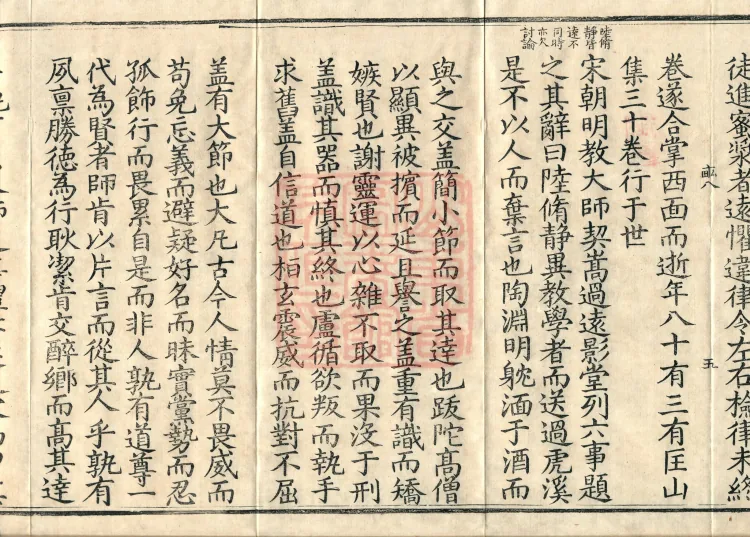 徒進蜜漿者遠懼違律令左右撿律未終
八
五
卷遂合掌西面而逝年八十有三有匡山
集三十卷行于世
陸脩
静與
遠不
同時
亦欠
討論
宋朝明教大師契嵩過遠影堂列六事題
之其辭曰陸脩静異教學者而送過虎溪
是不以人而棄言也陶淵明躭湎于酒而
與之交盖簡小節而取其達也跋陀髙僧
以顯異被擯而延且譽之盖重有識而矯
嫉賢也謝靈運以心雜不取而果沒于刑
盖識其器而慎其終也盧循欲叛而執手
求舊盖自信道也桓玄震威而抗對不屈
盖有大節也大凡古今人情莫不畏威而
苟免忘義而避疑好名而昧實黨勢而忍
孤飾行而畏累自是而非人孰有道尊一
代為賢者師肯以片言而從其人乎孰有
夙稟勝德為行耿潔肯交醉鄉而髙其達